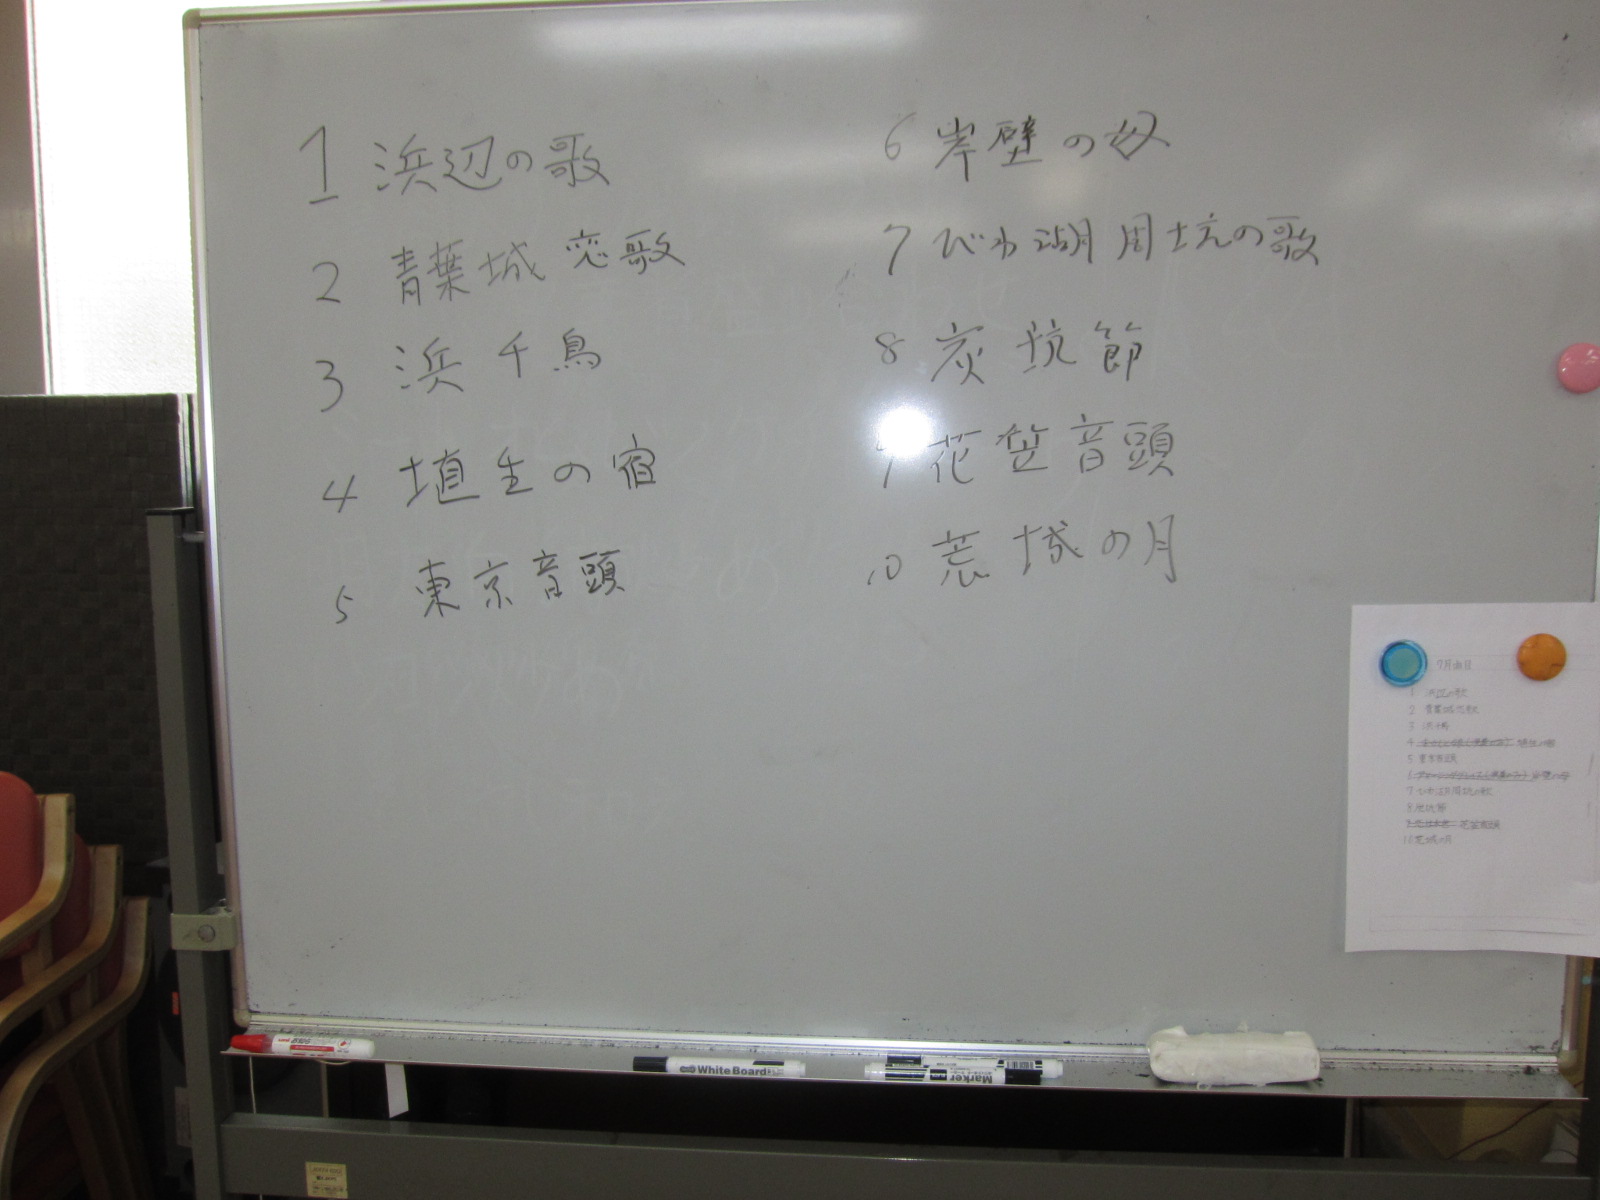 1 浜辺の歌
2 青葉城恋歌
3 浜千鳥
4 埴生の宿
5 東京音頭
6 岸壁の母
7 びわ湖周坑の歌
8 炭坑節
9 花笠音頭
10 荒城の月
1 浜辺の歌
2 青葉城恋歌
3 浜千鳥
4 埴生の宿
5 東京音頭
6 岸壁の母
7 びわ湖周坑の歌
8 炭坑節
9 花笠音頭
10 荒城の月
White Board
Marker